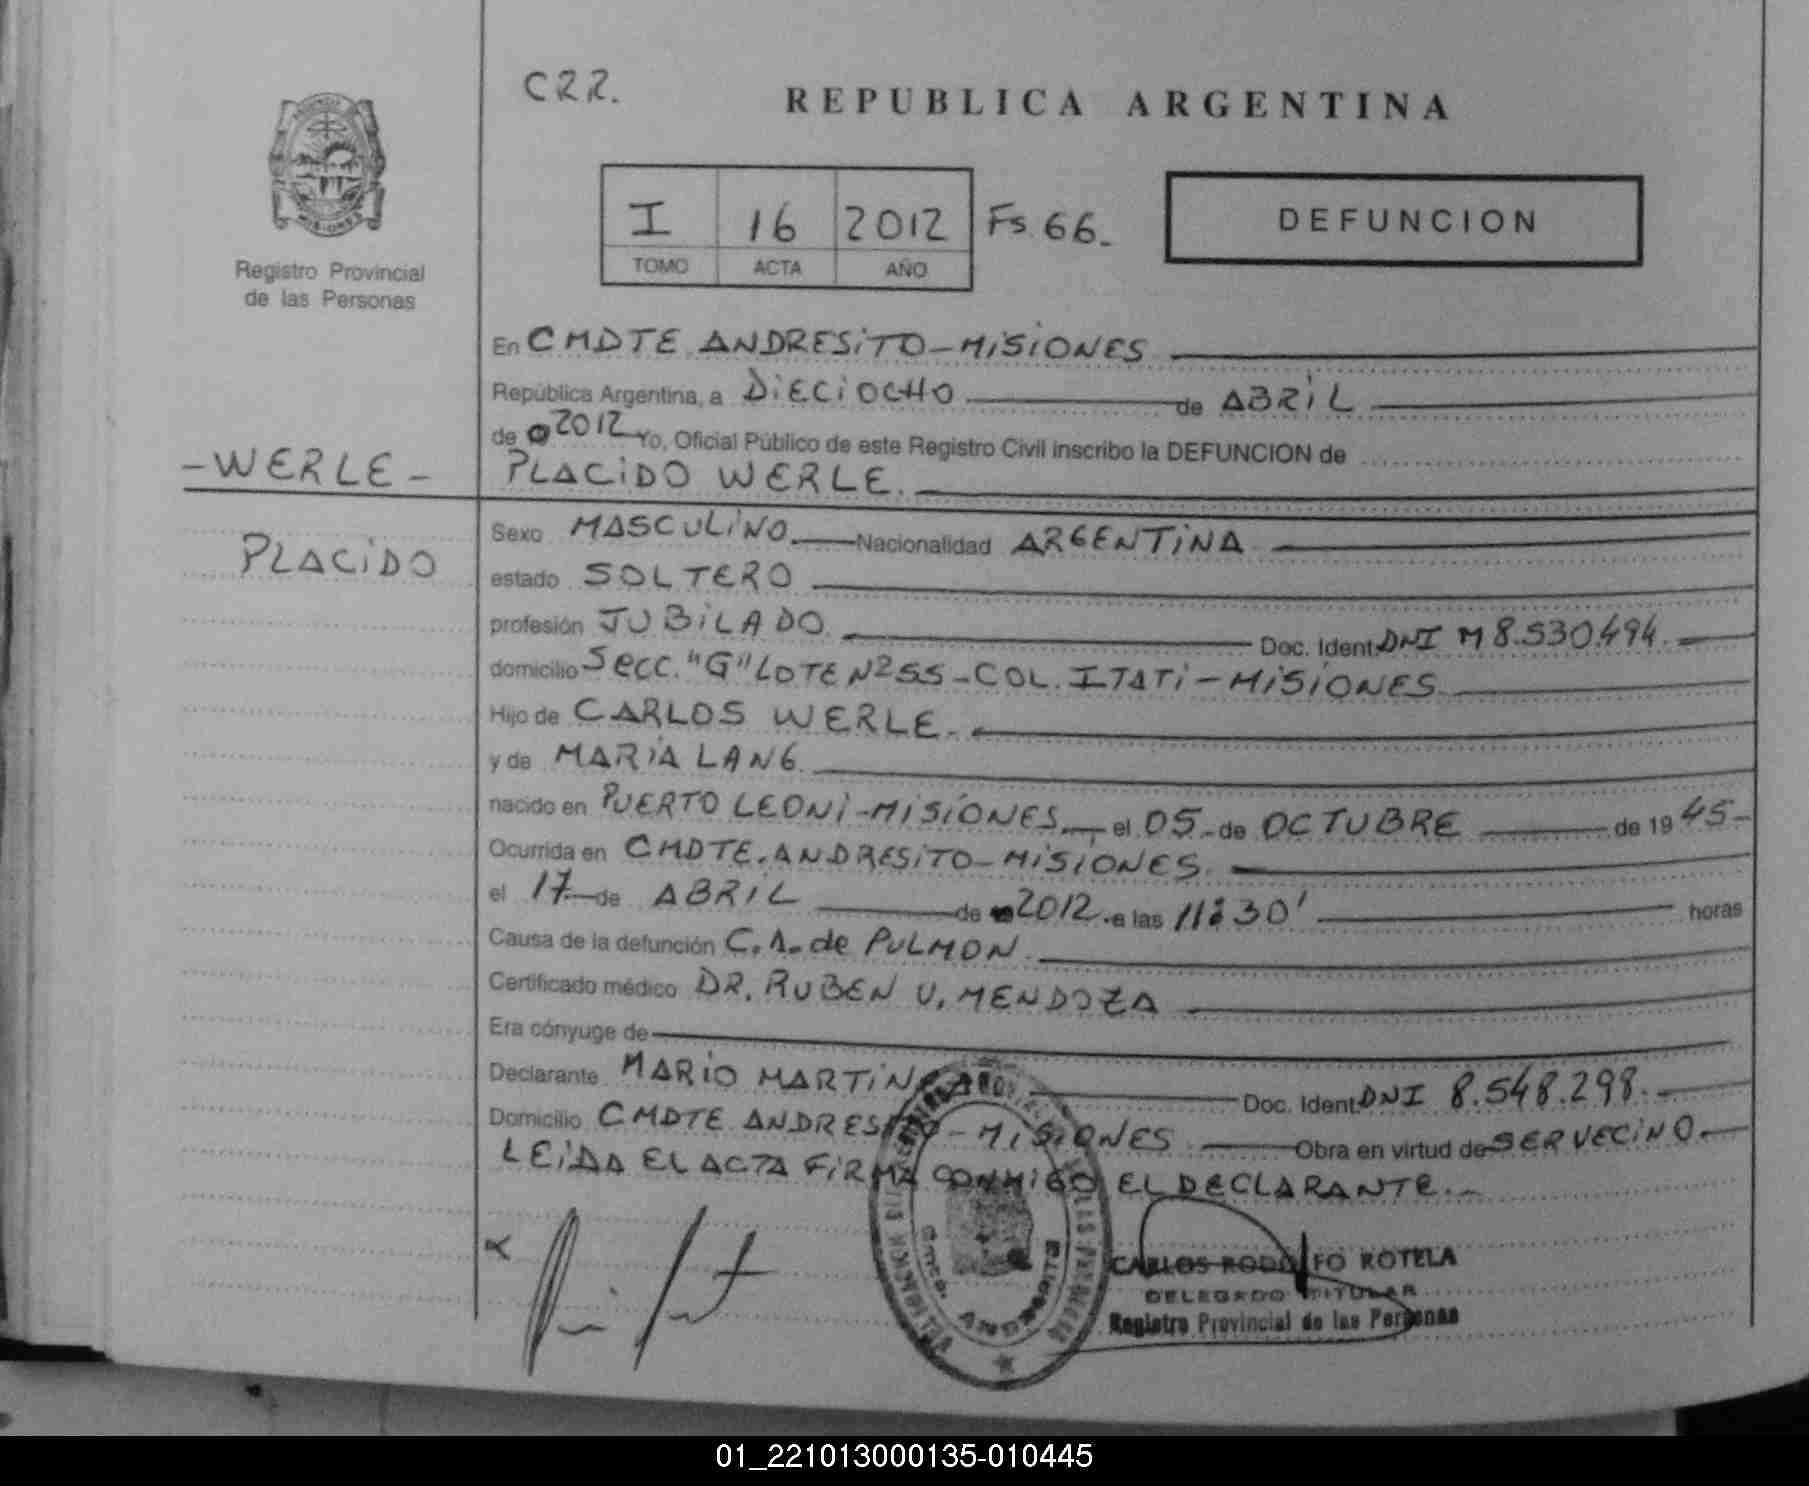 CRR.
REPUBLICA ARGENTINA
I 16 2012 Fs. 66.
TOMO ACTA AÑO
DEFUNCION
Registro Provincial
de las Personas
En CMDTE ANDRESITO - MISIONES
República Argentina, a DIECIOCHO de ABRIL
de 2012 Yo, Oficial Público de este Registro Civil inscribo la DEFUNCION de
- WERLE - PLACIDO WERLE.
PLACIDO
Sexo MASCULINO Nacionalidad ARGENTINA
estado SOLTERO
profesión JUBILADO Doc. Ident. DNI M 8.530.494.
domicilio Secc. "G" LOTE Nº 55 - COL. ITATI - MISIONES
Hijo de CARLOS WERLE.
y de MARIA LANG
nacido en PUERTO LEONI - MISIONES el 05 de OCTUBRE de 19 45-
Ocurrida en CMDTE. ANDRESITO - MISIONES.
el 17 de ABRIL de 2012 a las 11:30' horas
Causa de la defunción C.A. de PULMON.
Certificado médico DR. RUBEN V. MENDOZA
Era cónyuge de
Declarante MARIO Doc. Ident. DNI 8.548.298.
Domicilio CMDTE ANDRESITO - MISIONES Obra en virtud de SER VECINO.
LEIDA EL ACTA FIRMA CONMIGO EL DECLARANTE.
CARLOS RODOLFO ROTELA
DELEGADO TITULAR
Registro Provincial de las Personas
01_221013000135-010445